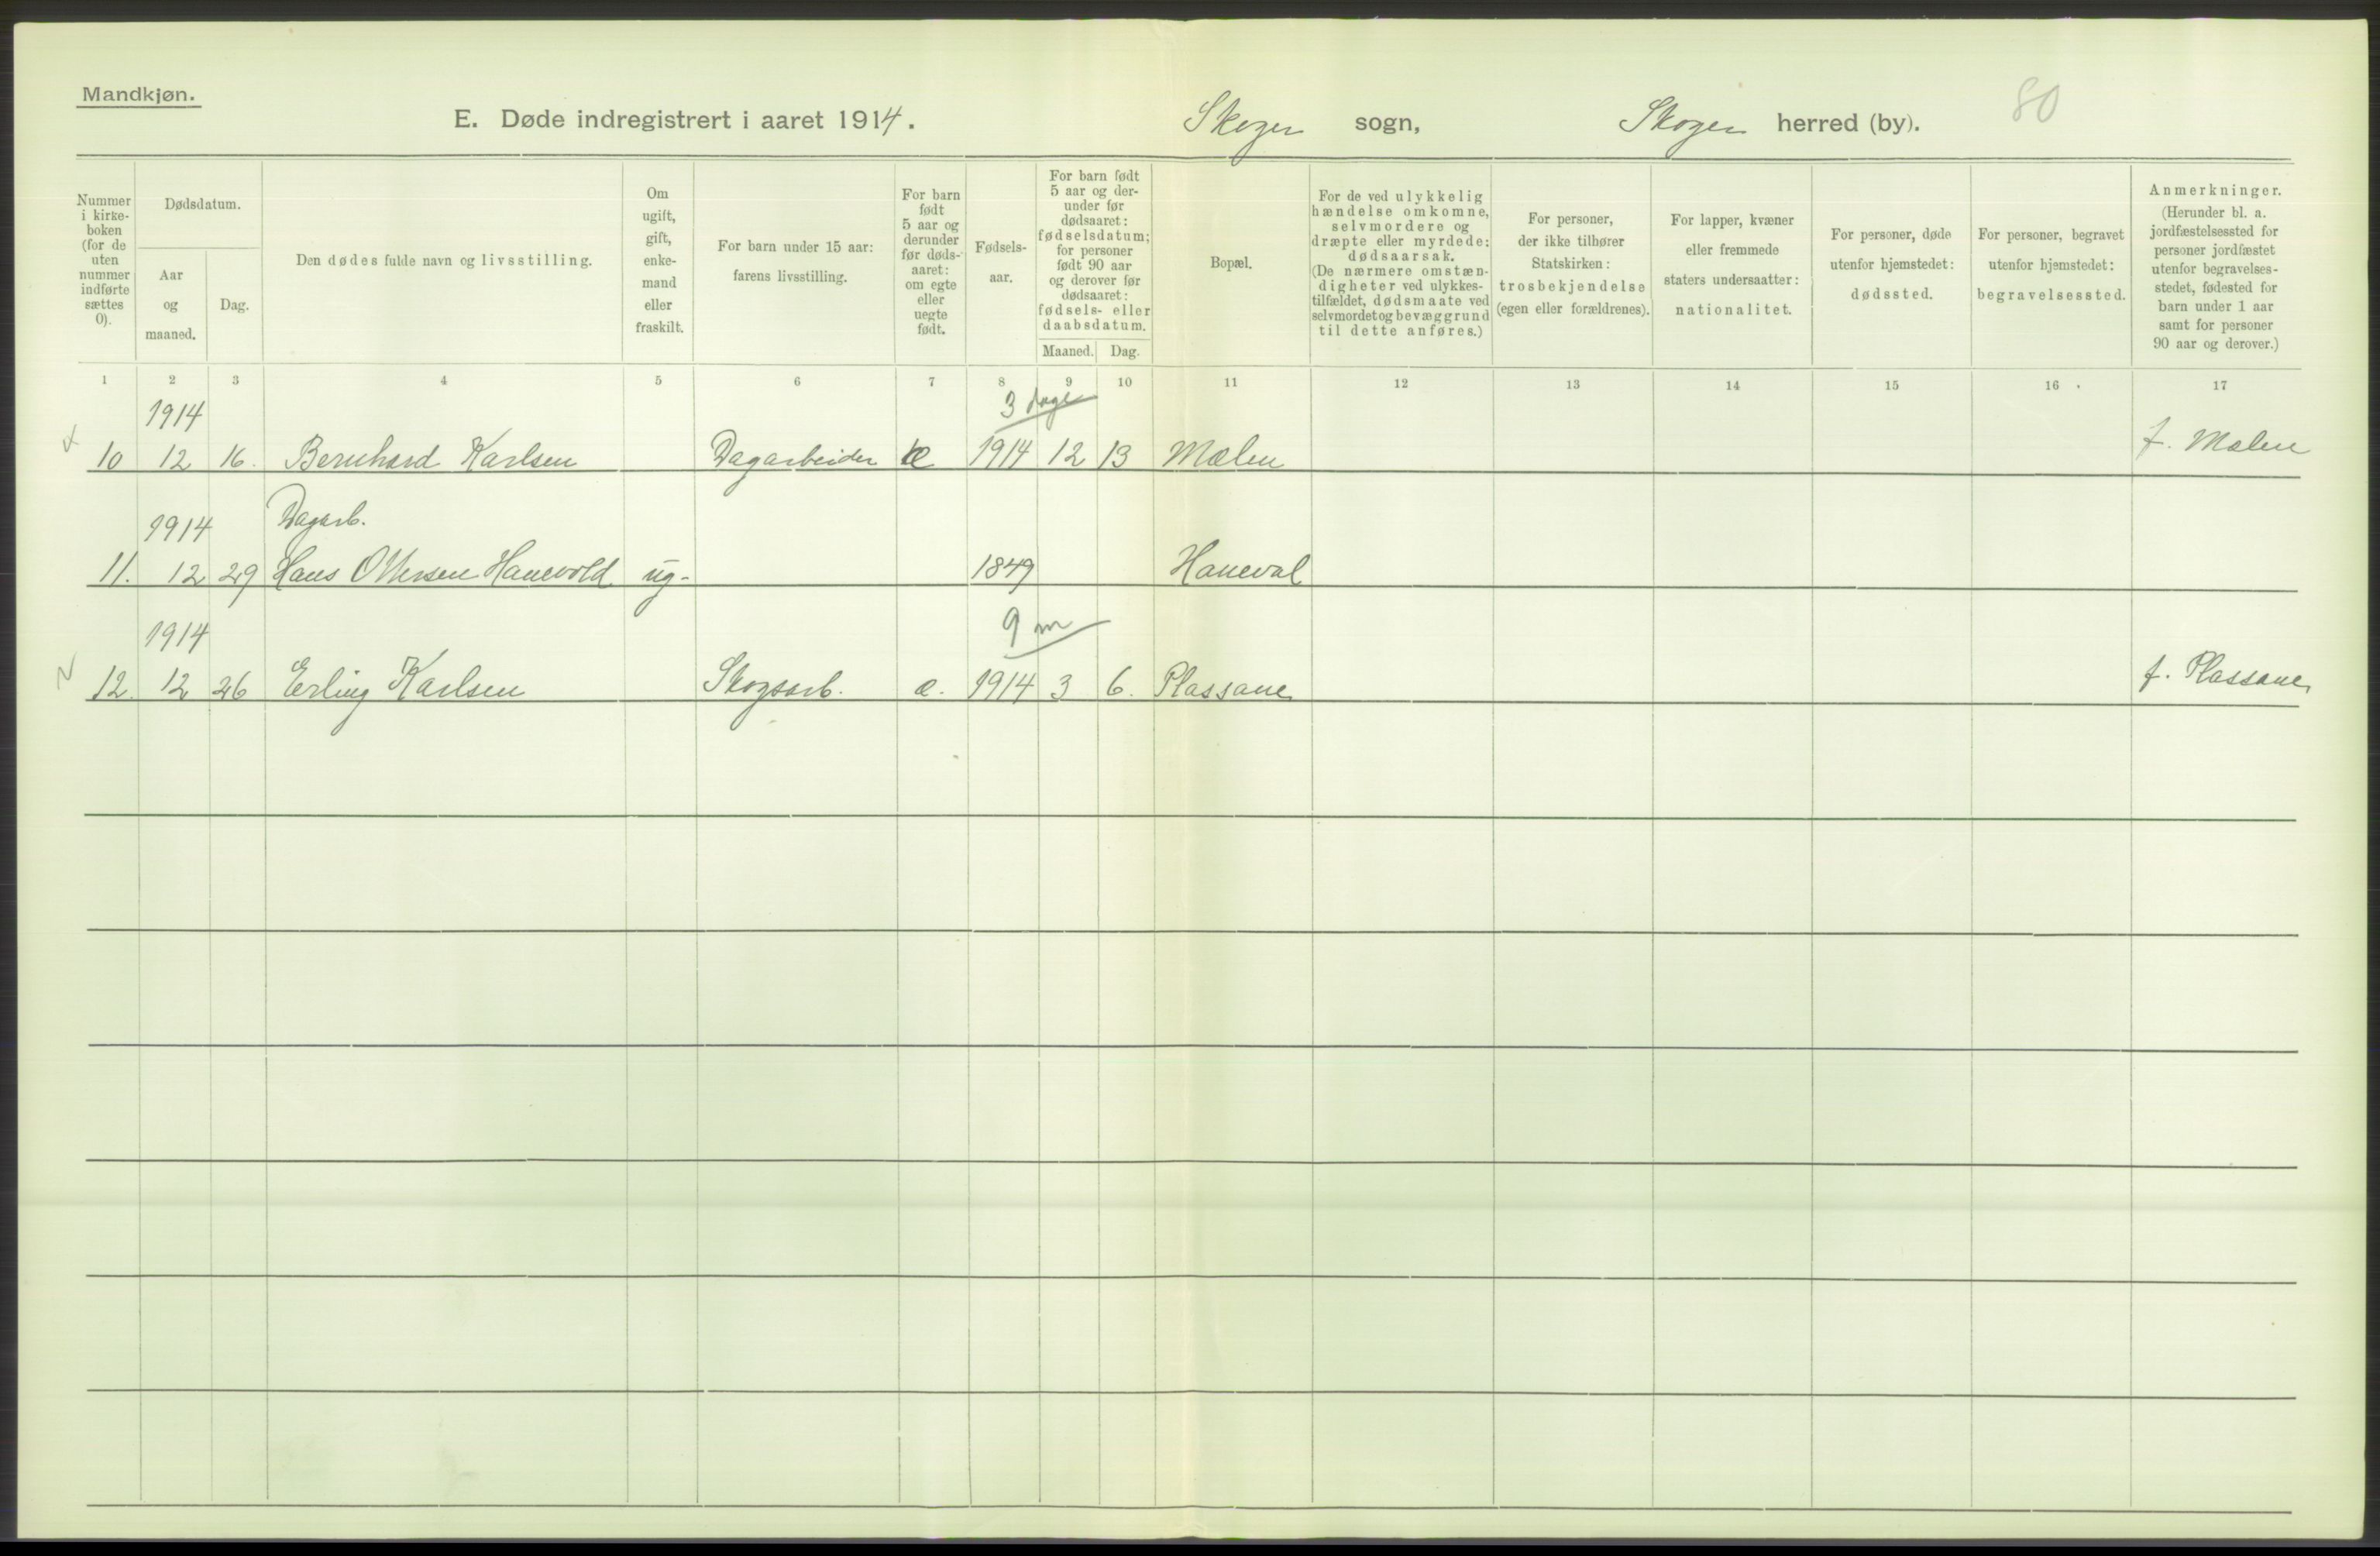 Mandkjøn.
E. Døde indregistrert i aaret 1914. Skoger sogn, Skoger herred (by). 80
Nummer i kirke-boken (for de uten nummer indførte sættes 0).
Dødsdatum.
Aar og maaned.
Dag.
Den dødes fulde navn og livsstilling.
Om ugift, gift, enke-mand eller fraskilt.
For barn under 15 aar: farens livsstilling.
For barn født 5 aar og derunder før døds-aaret: om egte eller uegte født.
Fødsels-aar.
For barn født 5 aar og der-under før dødsaaret: fødselsdatum; for personer født 90 aar og derover før dødsaaret: fødsels- eller daabsdatum.
Maaned. Dag.
Bopæl.
For de ved ulykkelig hændelse omkomne, selvmordere og dræpte eller myrdede: dødsaarsak. (De nærmere omstæn-digheter ved ulykkes-tilfældet, dødsmaate ved selvmordet og bevæggrund til dette anføres.)
For personer, der ikke tilhører Statskirken: trosbekjendelse (egen eller forældrenes).
For lapper, kvæner eller fremmede staters undersaatter: nationalitet.
For personer, døde utenfor hjemstedet: dødssted.
For personer, begravet utenfor hjemstedet: begravelsessted.
Anmerkninger. (Herunder bl. a. jordfæstelsessted for personer jordfæstet utenfor begravelses-stedet, fødested for barn under 1 aar samt for personer 90 aar og derover.)
1 2 3 4 5 6 7 8 9 10 11 12 13 14 15 16 17
1914 3 dage
10 12 16. Bernhard Karlsen Dagarbeider e 1914 12 13 Mælen f. Mælen
1914 Dagarb.
11. 12 29 Hans Ottersen Hanevold ug- 1849 Haneval
1914 9 m
12. 12 26 Erling Karlsen Skogsarb. e. 1914 3 6. Plassane f. Plassane